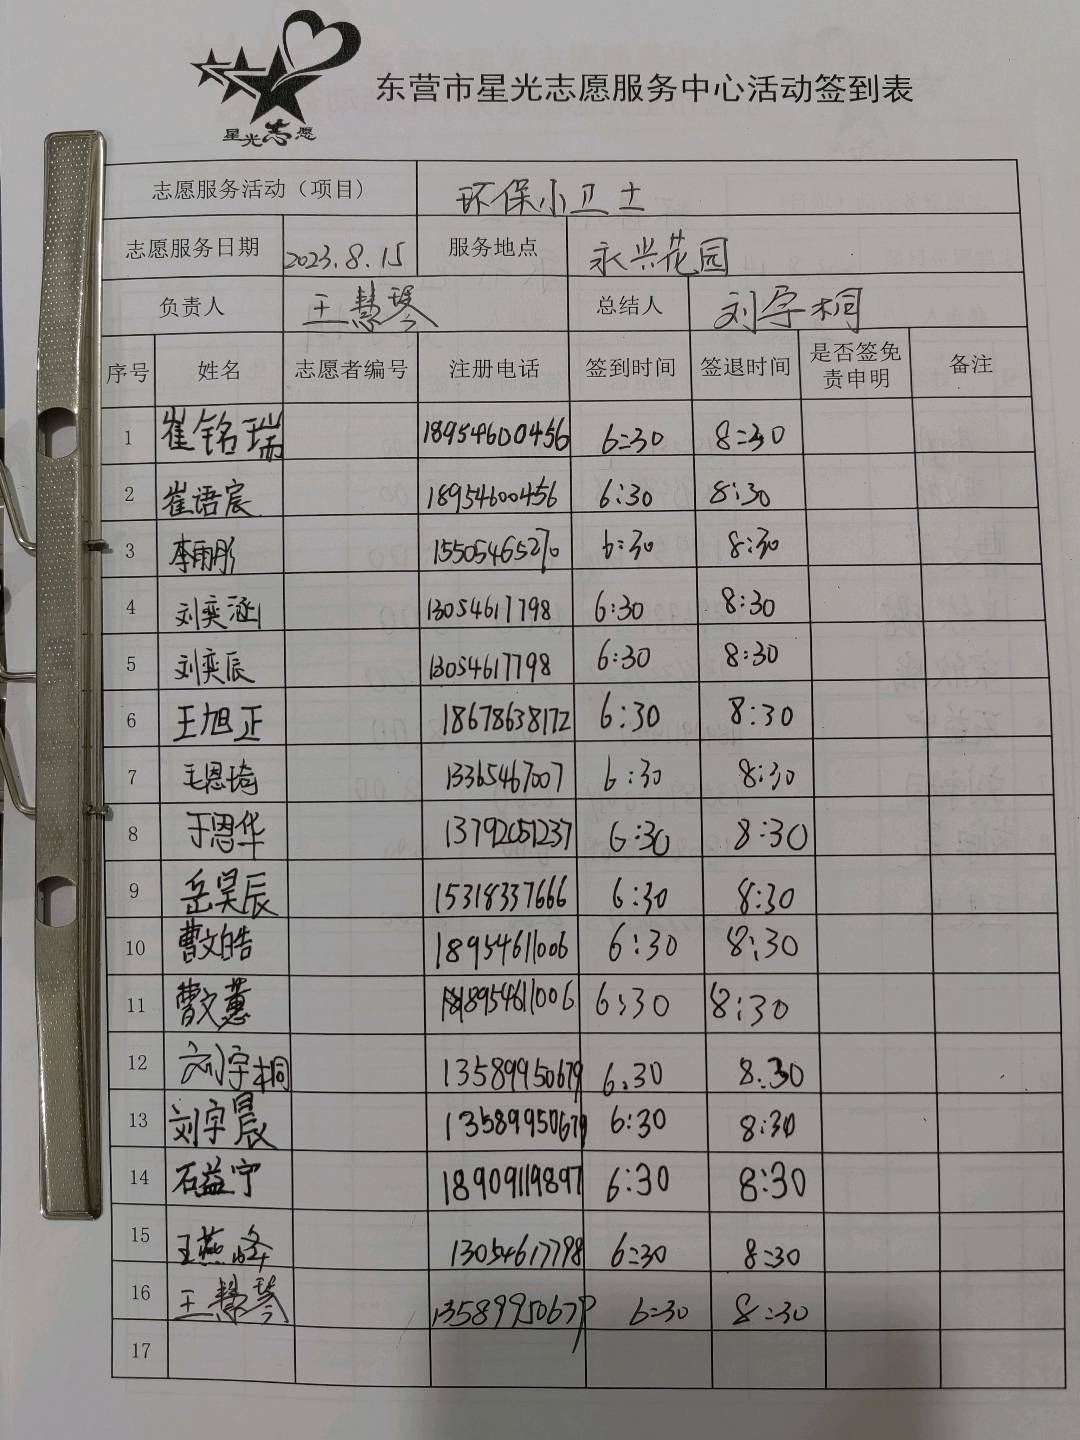 星光志愿
东营市星光志愿服务中心活动签到表
志愿服务活动（项目） 环保小卫士
志愿服务日期 2023.8.15 服务地点 永兴花园
负责人 王慧琴 总结人 刘宇桐
序号 姓名 志愿者编号 注册电话 签到时间 签退时间 是否签免责申明 备注
1 崔铭瑞 18954600456 6:30 8:30
2 崔语宸 18954600456 6:30 8:30
3 李雨彤 15505465270 6:30 8:30
4 刘奕涵 13054617798 6:30 8:30
5 刘奕辰 13054617798 6:30 8:30
6 王旭正 18678638172 6:30 8:30
7 毛恩琦 13365467007 6:30 8:30
8 于恩华 13792051237 6:30 8:30
9 岳昊辰 15318337666 6:30 8:30
10 曹文皓 18954611006 6:30 8:30
11 曹文蕙 18954611006 6:30 8:30
12 刘宇桐 13589950679 6.30 8:30
13 刘宇晨 13589950679 6:30 8:30
14 石益宁 18909119897 6:30 8:30
15 王燕峰 13054617798 6:30 8:30
16 王慧琴 13589950679 6:30 8:30
17